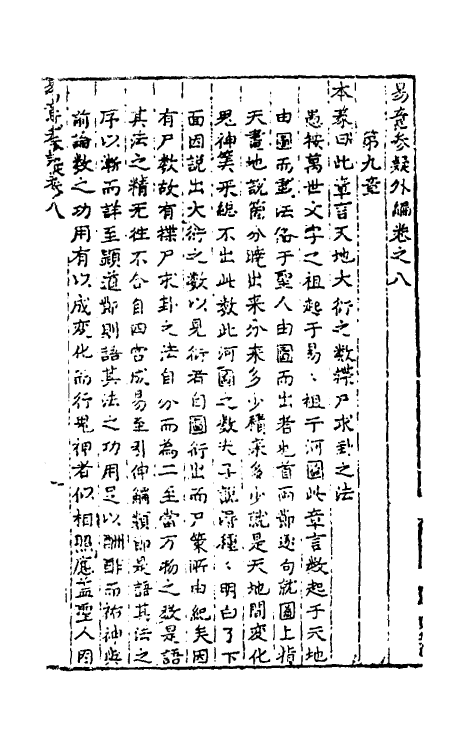 易意参疑外編卷之八
第九章
本義曰此章言天地大衍之数揲尸求卦之法
愚按萬世文字之祖起于易〻祖于河圖此章言数起于天地
由圖而畫法名于聖人由圖而出者也首兩節逐句就圖上指
天畫地說箇分曉出来分来多少積来多少說是天地間變化
鬼神筭来総不出此数此河圖之数夫子說得極〻明白了下
面因說出大衍之数以見衍者自圖衍出而尸策所由紀矣因
有尸数故有揲尸求卦之法自分而為二至當万物之数是語
其法之精无往不合自四营成易至引伸觸類即是語其法之
序以漸而詳至顕道節則語其法之功用足以酬酢而祐神與
前論数之功用有以成变化而行鬼神者似相照應葢聖人因
易意参疑卷八
一